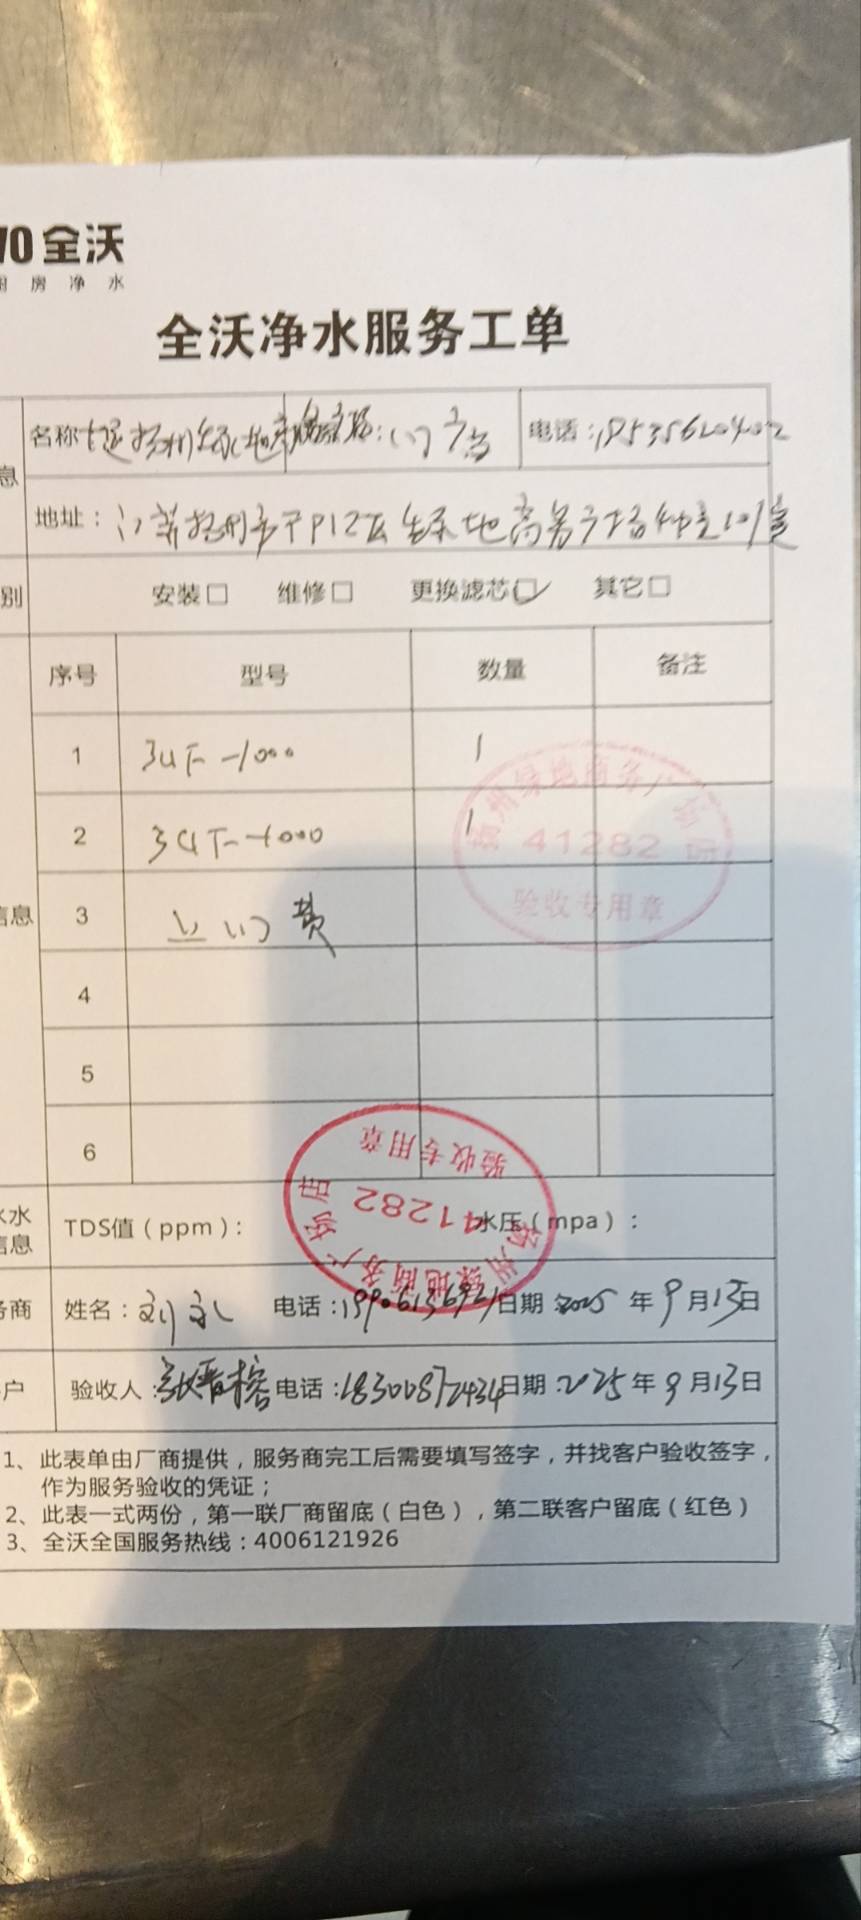 全沃
房 净 水
全沃净水服务工单
息
名称 门店 电话：18535620402
地址： 江苏扬州市邗江区绿地商务广场 101室
别 安装□ 维修□ 更换滤芯□✓ 其它□
序号 型号 数量 备注
1 3UF-1000 1
2 3UF-1000 1
信息 3 上门费
4
5
6
扬州绿地商务广场店
41282
验收专用章
扬州绿地商务广场店
41282
验收专用章
水
信息 TDS值（ppm）： 水压（mpa）：
务商 姓名：刘 电话： 日期：2025 年 9 月 13 日
户 验收人： 电话：18300872434 日期：2025 年 9 月 13 日
1、此表单由厂商提供，服务商完工后需要填写签字，并找客户验收签字，
作为服务验收的凭证；
2、此表一式两份，第一联厂商留底（白色），第二联客户留底（红色）
3、全沃全国服务热线：4006121926